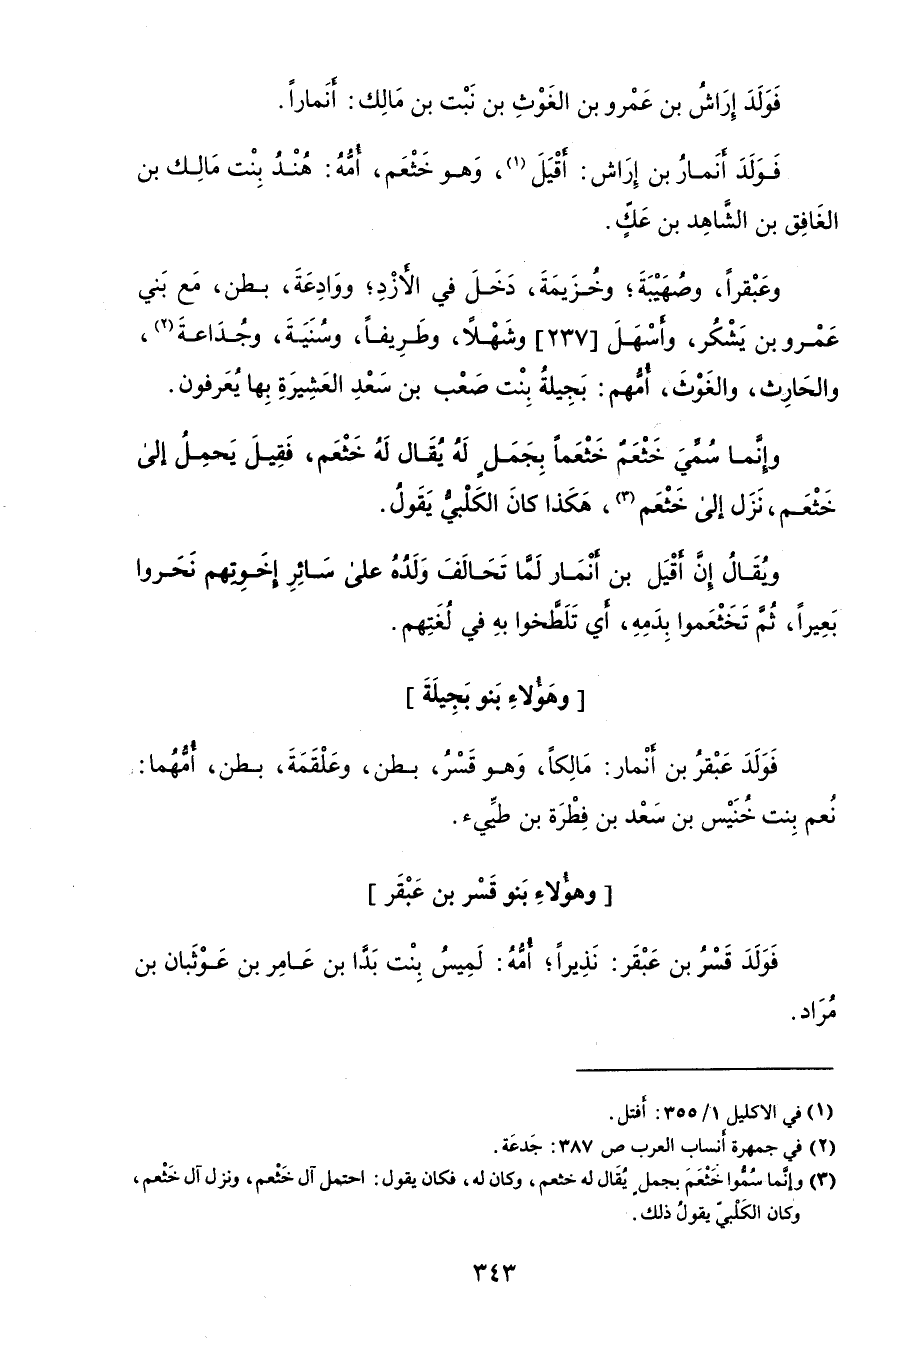 فَوَلَدَ إِرَاشُ بن عَمْرو بن الغَوْثِ بن نَبْت بن مَالِك: أَنماراً.
فَوَلَدَ أَنمارُ بن إِرَاش: أَقْيَلَ (١)، وَهو خَثْعَم، أُمُّهُ: هُنْدُ بِنْت مَالِك بن
الغَافِق بن الشَّاهِد بن عَكٍّ.
وعَبْقراً، وصُهَيْبَةَ؛ وخُزيمَةَ، دَخَلَ في الأَزْدِ؛ ووَادِعَةَ، بطن، مَع بَني
عَمْرو بن يَشْكُر، وأَسْهَلَ [٢٣٧] وشَهْلًا، وطَرِيفاً، وسُنَيَةَ، وجُدَاعةَ (٢)،
والحَارِث، والغَوْثَ، أُمُّهم: بَجِيلةُ بِنْت صَعْب بن سَعْدِ العَشِيرَةِ بها يُعَرفون.
وإِنَّما سُمِّيَ خَثْعَمُ خَثْعَماً بِجَمَلٍ لَهُ يُقَال لَهُ خَثْعَم، فَقِيلَ يَحمِلُ إلىٰ
خَثْعَم، نَزَل إلىٰ خَثْعَم (٣)، هَكَذا كانَ الكَلْبيُّ يَقولُ.
ويُقَالُ إنَّ أَقْيَل بن أَنْمَار لَمَّا تَحَالَفَ وَلَدُهُ علىٰ سَائِرِ إخَوتِهم نَحَروا
بَعِيراً، ثُمَّ تَخَثْعَموا بِدَمِهِ، أَي تَلَطَّخوا بهِ في لُغَتِهم.
[ وهَؤُلاءِ بَنو بَجِيلَةَ ]
فَوَلَدَ عَبْقرُ بن أَنْمار: مَالِكاً، وَهو قَسْرُ، بطن، وعَلْقَمَةَ، بطن، أُمُّهُما:
نُعم بِنت خُنَيْس بن سَعْد بن فِطْرَة بن طيِّيء.
[ وهؤُلاءِ بَنو قَسْر بن عَبْقَر ]
فَوَلَدَ قَسْرُ بن عَبْقَر: نَذِيراً؛ أُمُّهُ: لَمِيسُ بِنْت بَدَّا بن عَامِر بن عَوْثَبان بن
مُرَاد.
(١) في الاكليل ١/ ٣٥٥: أَفتل.
(٢) في جمهرة أنساب العرب ص ٣٨٧: جَدعَة.
(٣) وإنَّما سُمُّوا خَثْعَمَ بجملٍ يُقَال له خثعم، وكان له، فكان يقول: احتمل آل خثْعم، ونزل آل خثْعم،
وكان الكَلْبيّ يقولُ ذلك.
٣٤٣